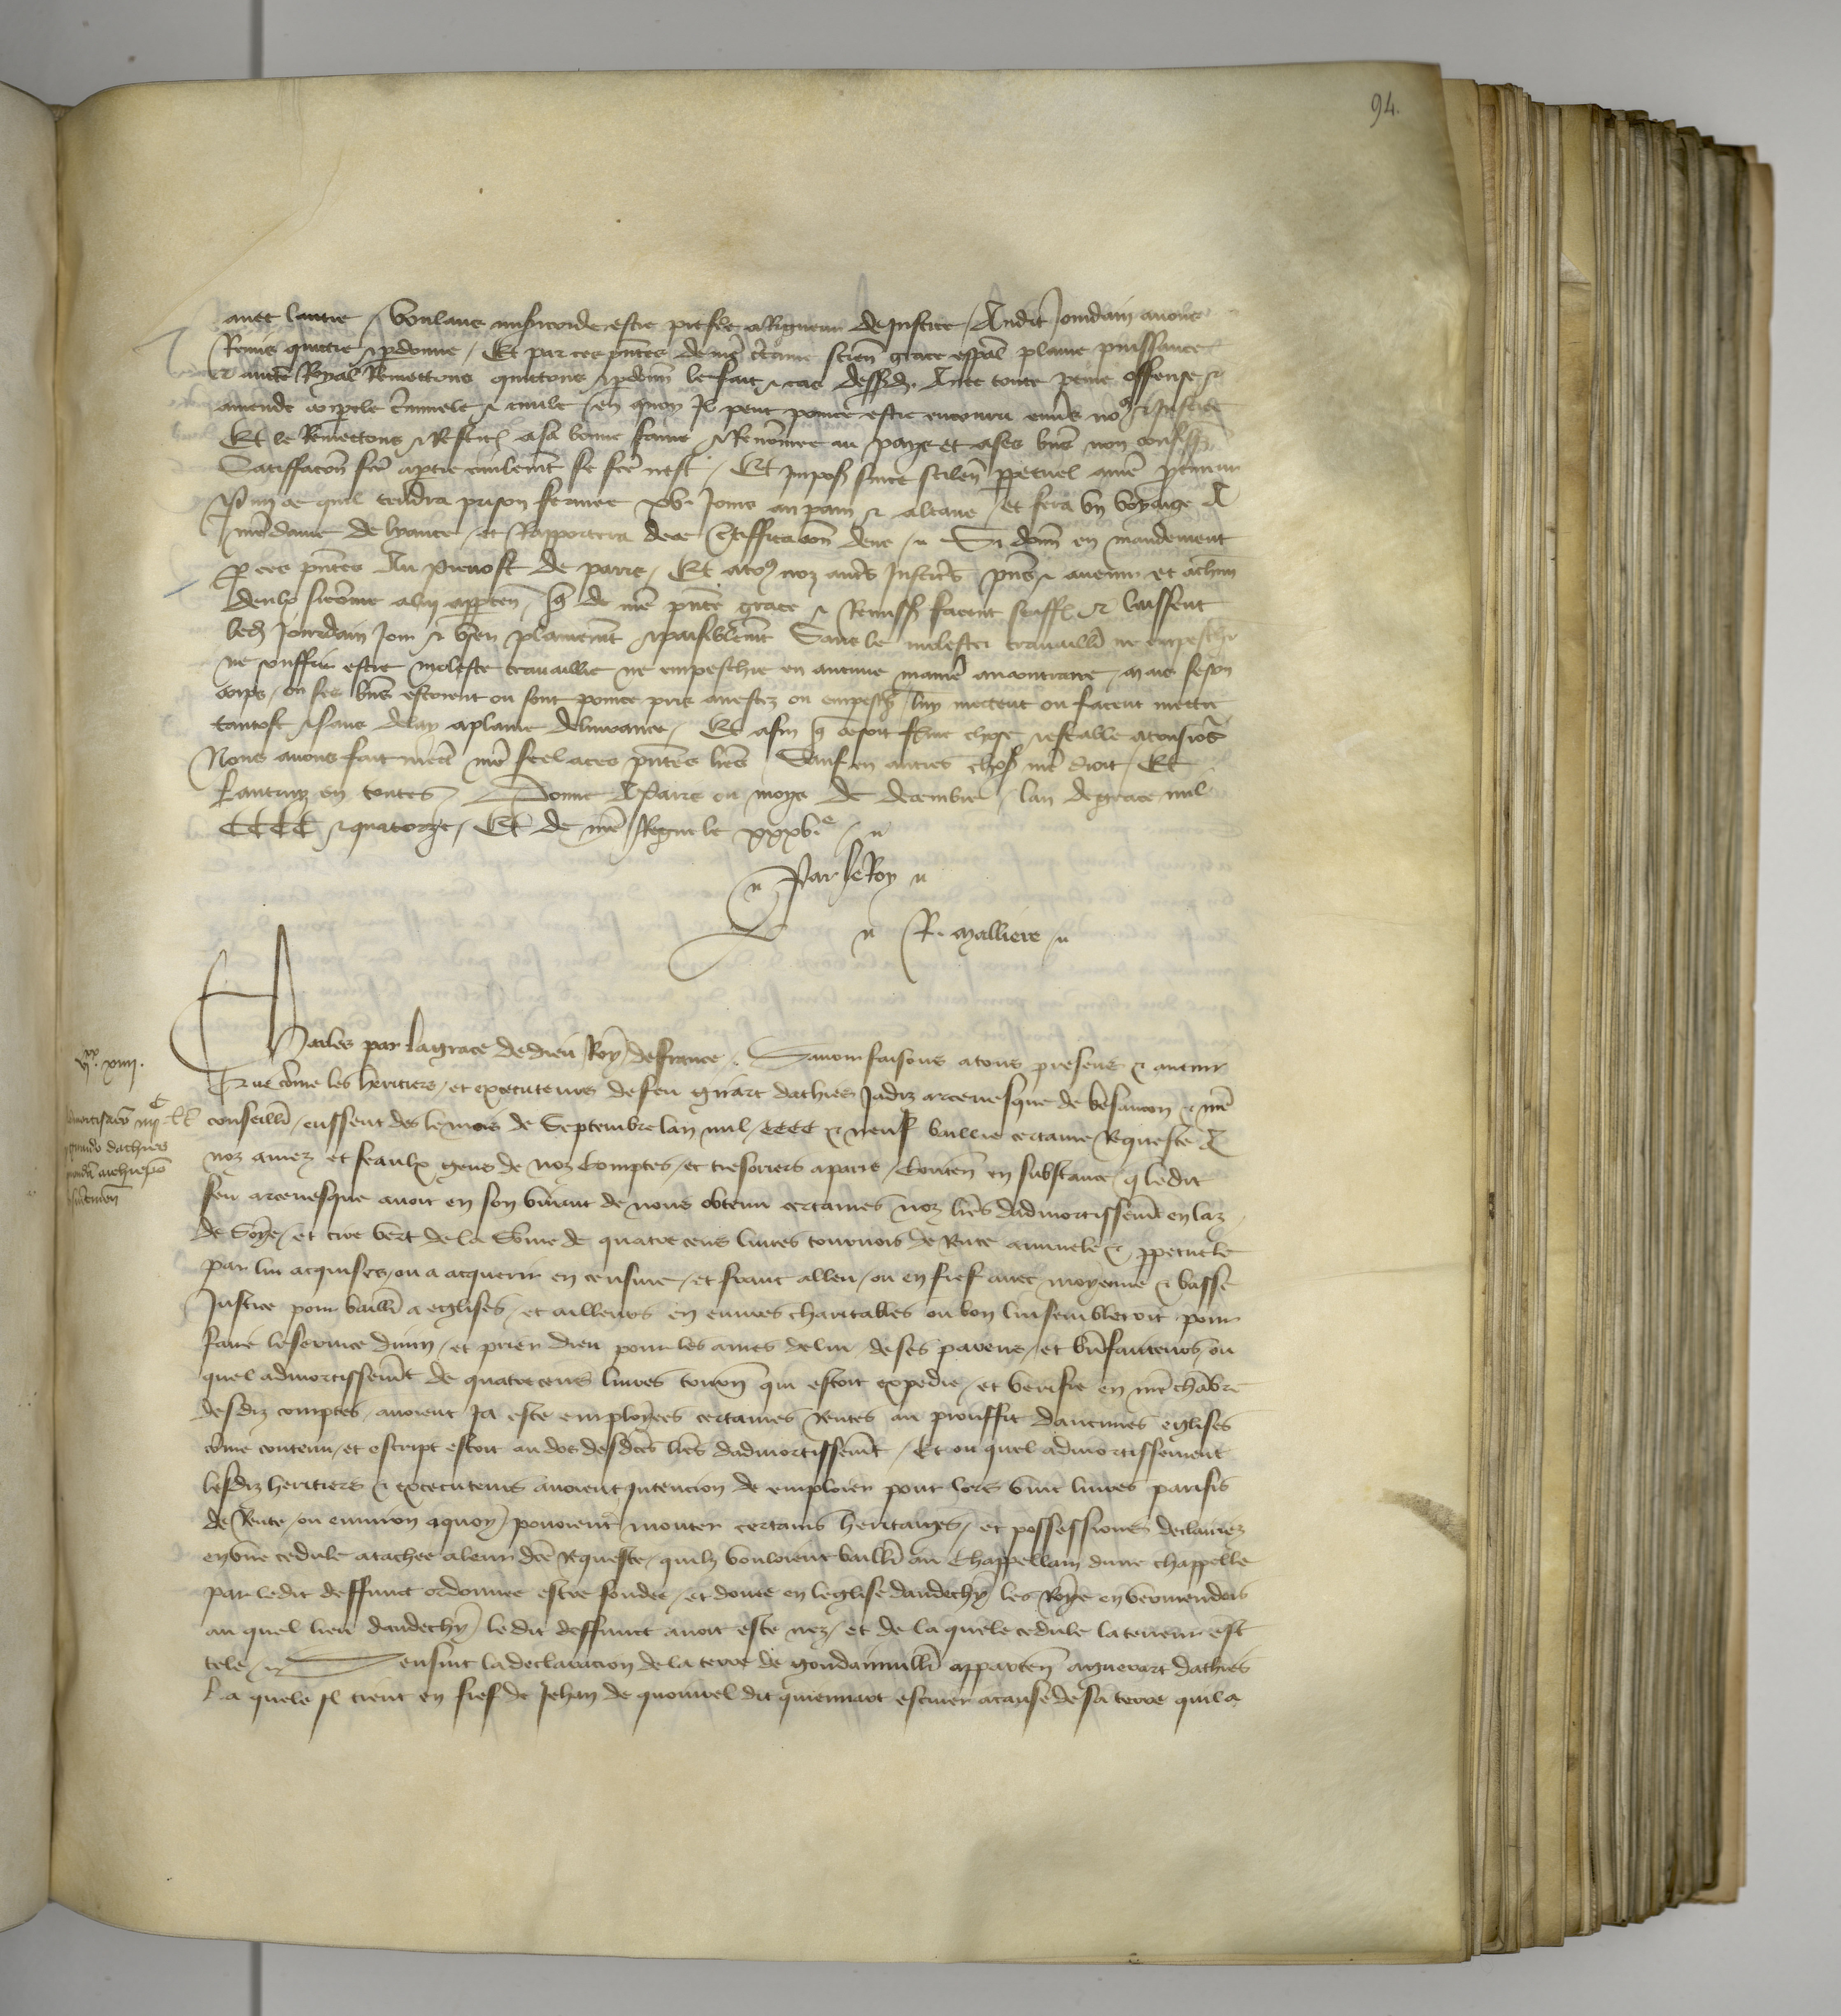 94.
avec lautre / voulans misericorde estre preferee a Rigueur de justice / Audit Jourdain avons
Remis quictie et pardonne / Et par ces pntes de nre certaine scien grace espal plaine puissance
et aucte Royal Remettons quittons et pdonn le fait et cas dessusd. Avec toute peine offense et
amende corpele criminele et civile en quoy Il peut pour ce estre encouru envs nous et justice
Et le Remettons et Restit a sa bonne fame et Renomee au pays et a ses biens non confisq
Satiffacon fce a ptie civilemt se fce nest / Et impos sur ce scilen ppetuel a nre pcureur
Parmy ce quil tendra prison fermee xv. jours au pain et a leaue / et fera un voyaige A
nre dame de lyance / et Rapportera de ce certifficacion deue / Si donn en mandement
par ces pntes Au prevost de paris / Et a tous noz autres justic pns et avenir et a chun
deulx si come a luy appten / que de nre pnte grace et Remiss facent seuffr et laissent
led Jourdain joir et user plainemt et paisiblemt Sans le molester travaillier ne empeschier
ne souffrir estre moleste travaillie ne empeschie en aucune maniere au contraire / Mais se son
corps / ou ses biens estoient ou sont pour ce pris arrestez ou empesch / luy mettent ou facent mettre
tantost et sans delay a plaine delivrance / Et afin que ce soit ferme chose et estable a tousjours
Nous avons fait mectre nre seel a ces pntes lres Sauf en autres choses nre droit / Et
lautruy en toutes / Donne A Paris ou moys de decembre / lan de grace mil
CCCC et quatorze / Et de nre Regne le xxxve /
Par le Roy
R. Malliere
Charles par la grace de dieu Roy de france / Savoir faisons a tous presens et avenir
Que come les heritiers / et executeurs de feu girart dathies jadiz arcevesque de besancon et nre
conseillr / eussent des le mois de Septembre lan mil / CCCC et neuf baillie certaine Requeste A
noz amez et feaulx gens de noz Comptes / et tresoriers a paris / Conten en substance que ledit
feu arcevesque avoit en son vivant de nous obtenu certaines noz lres dadmortissemt en laz
de Soye / et cire vert de la some de quatre cens livres tournois de Rente annuele et ppetuele
par lui acquises / ou a acquerir en censive / et franc alleu / ou en fief avec moyenne et basse
justice pour baillr a eglises / et ailleurs en euvres charitables ou bon lui sembleroit pour
faire le service divin / et prier dieu pour les ames de lui / de ses parens / et bnfaicteurs / ou
quel admortissemt de quatre cens livres tourn qui estoit expedie / et verifie en nre chabre
desdiz comptes / avoient ja este employees certaines Rentes au prouffit daucunes eglises
come contenu / et escript estoit au dos desdctes lres dadmortissemt / Et ou quel admortissement
lesdiz heritiers et executeurs avoient intencion de emploier pour lors vint livres parisis
de Rente / ou environ a quoy / povoient monter certains heritaiges / et possessions declairez
en une cedule atachee a leur dcte Requeste / quilz vouloient baillr au Chappellain dune chappelle
par ledit deffunct ordonnee estre fondee / et donee en leglise dandechy / les Roye en vermendois
au quel lieu dandechy / le dit deffunct avoit este nez / et de la quele cedule la teneur est
tele / Sensuit la declaracion de la terre de gondainvillr apparten a guerart dathies
La quele Il tient en fief de Jehan de quoivrel dit guennart escuier a cause de sa terre quil a